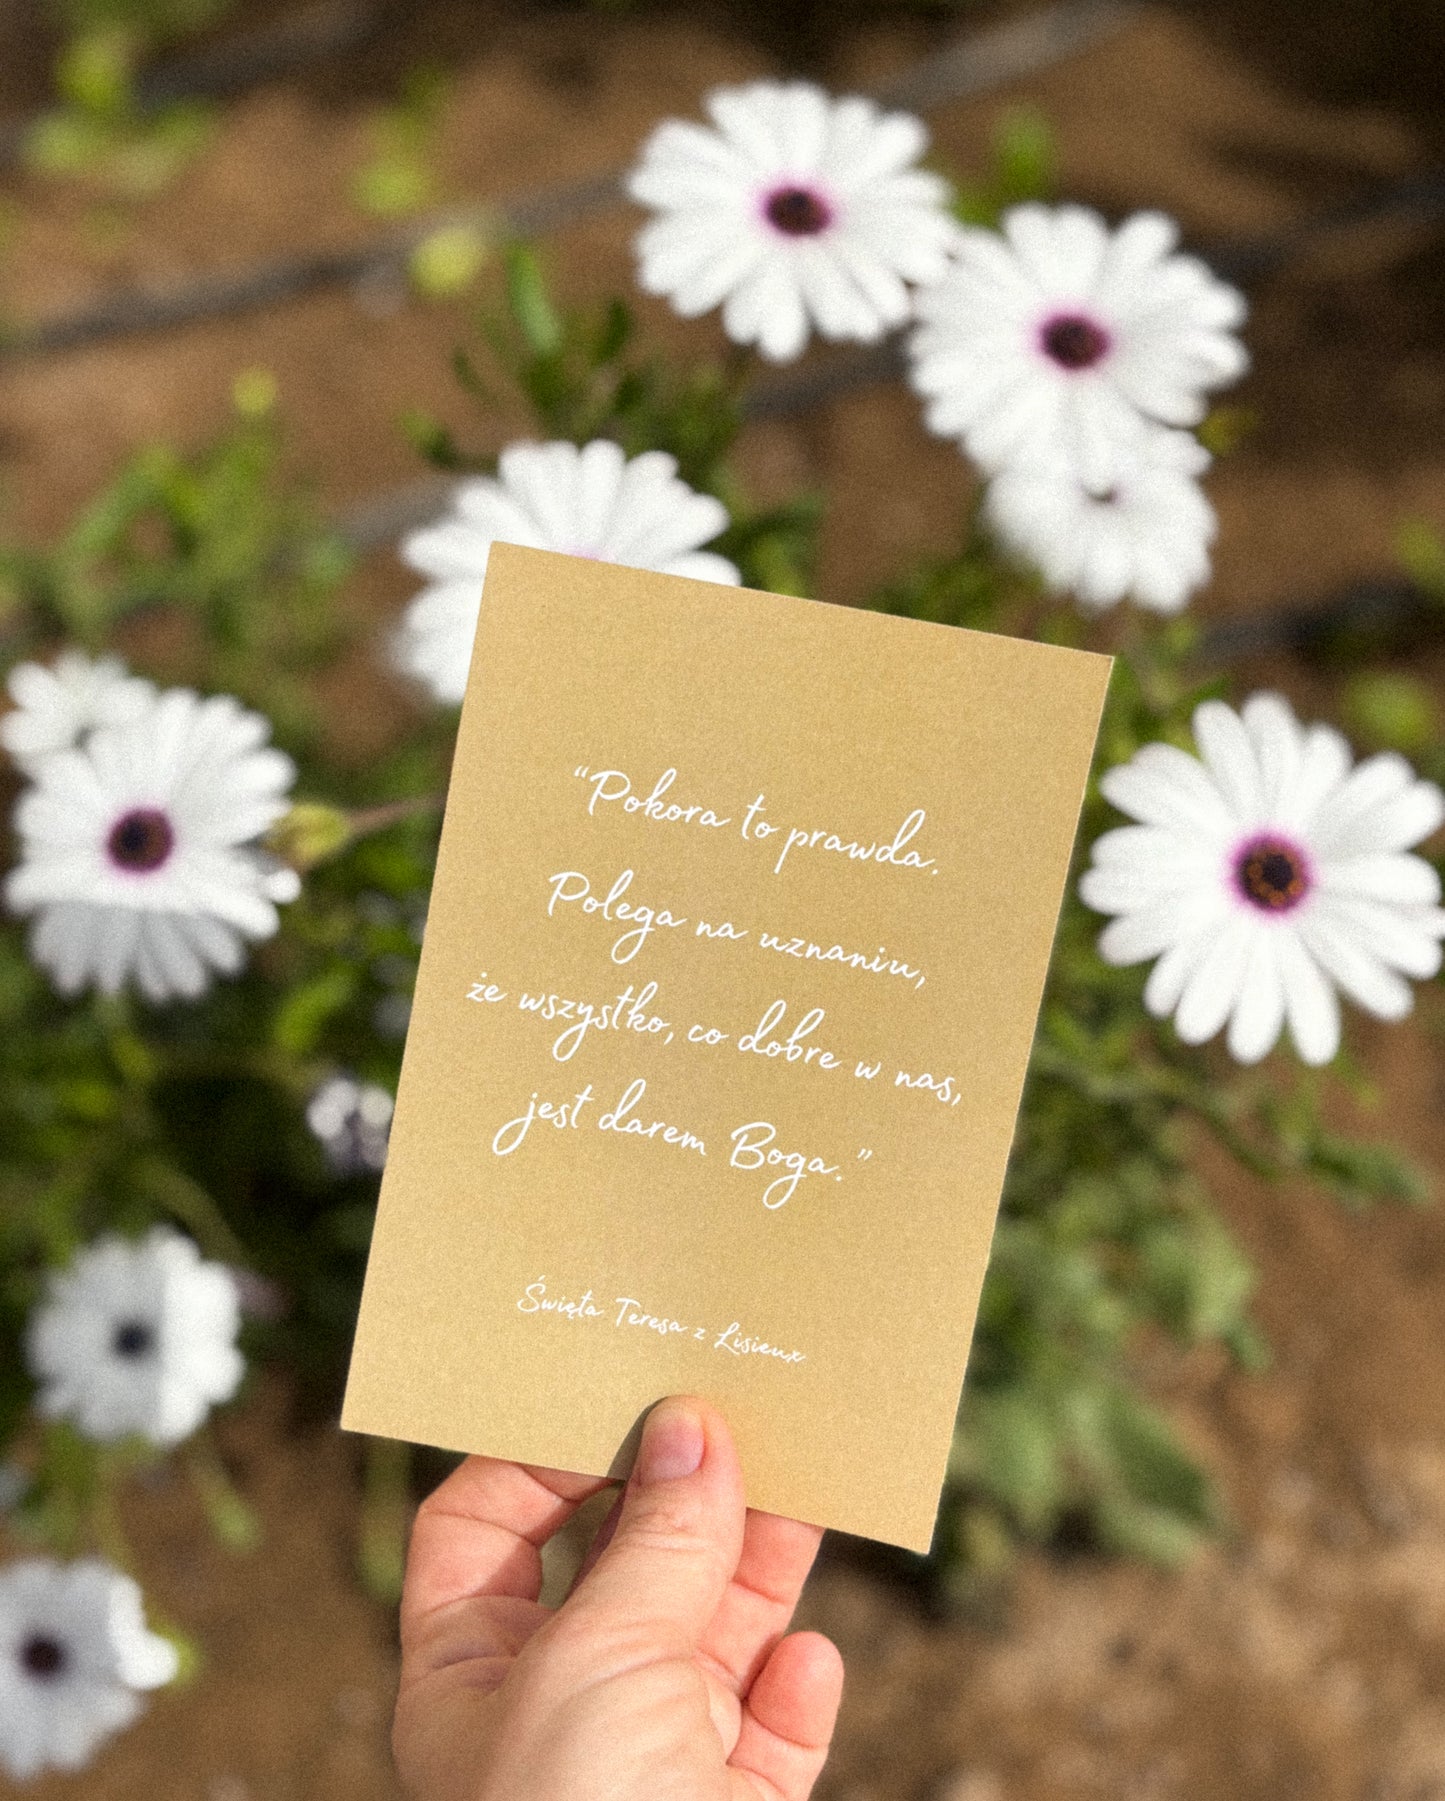 “Pokora to prawda.
Polega na uznaniu,
że wszystko, co dobre w nas,
jest darem Boga.”
Święta Teresa z Lisieux